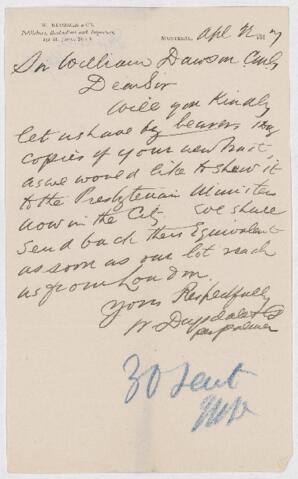 W. DRYSDALE & CO.
Publishers, Booksellers and Importers,
232 St. James Street
MONTREAL,
Sir William Dawson
Dear Sir
Will you Kindly
let us have by bearer
copies of your new
as we would like to show it
to the Presbyterian Ministers
now in the City We shall
send back their Equivalent
as soon as our lot reach
us from London.
Yours Respectfully
W Drysdale & Co
per palmer
30 sent